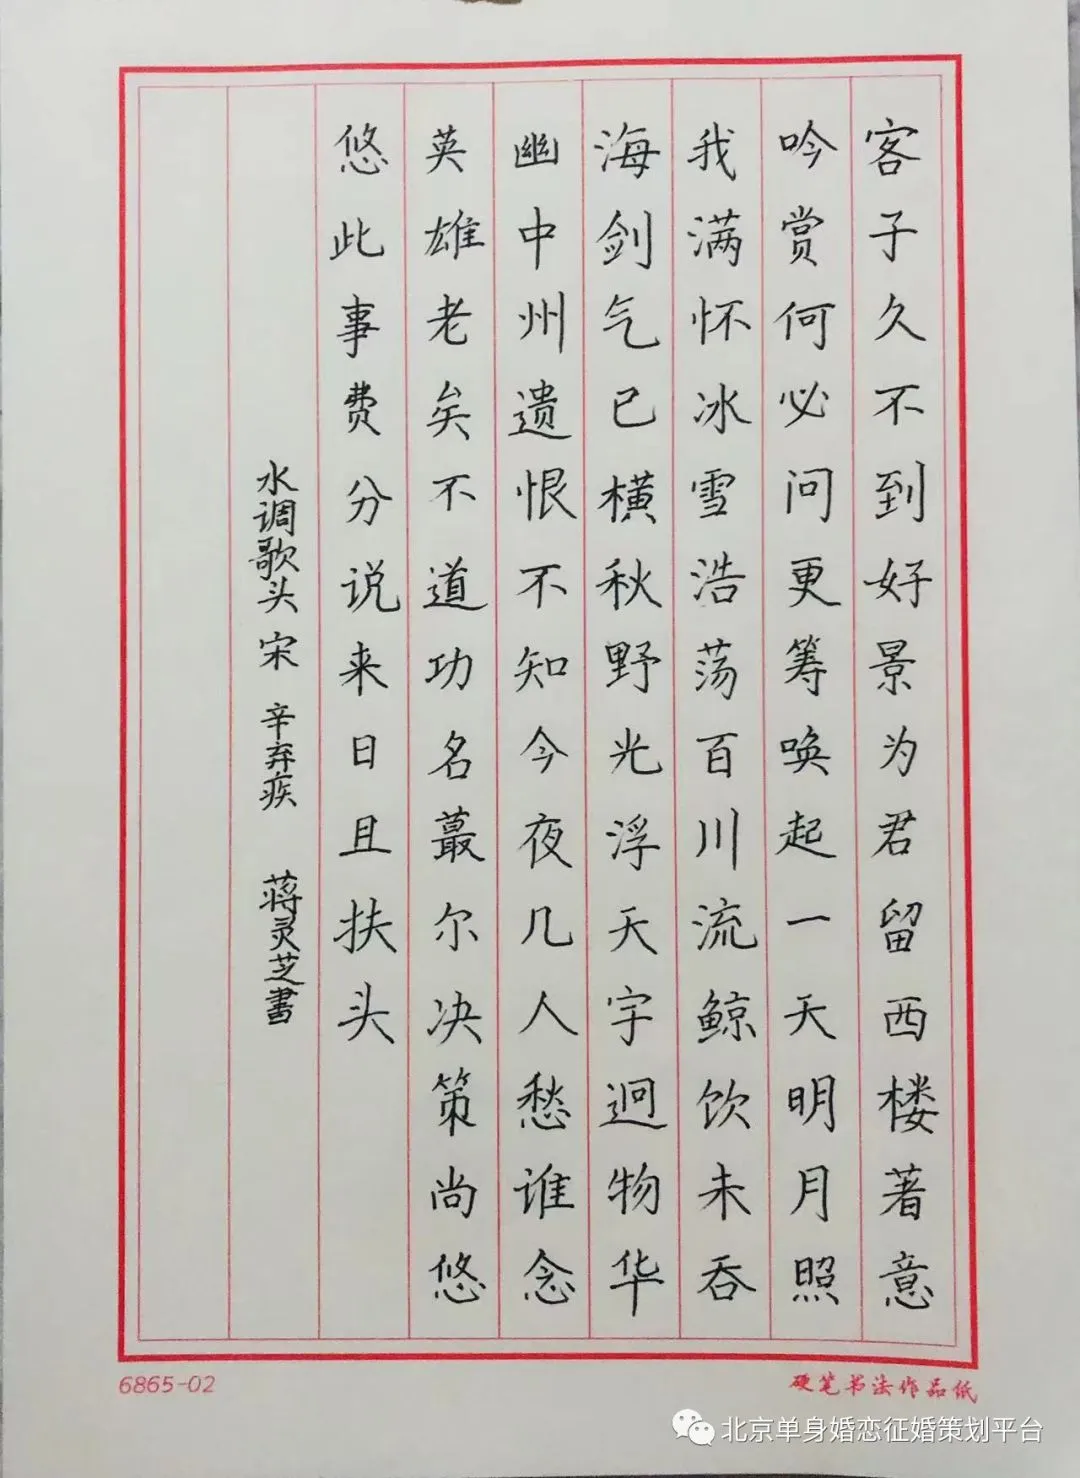 客子久不到好景为君留西楼著意
吟赏何必问更筹唤起一天明月照
我满怀冰雪浩荡百川流鲸饮未吞
海剑气已横秋野光浮天宇迥物华
幽中州遗恨不知今夜几人愁谁念
英雄老矣不道功名蕞尔决策尚悠
悠此事费分说来日且扶头
水调歌头 宋 辛弃疾 蒋灵芝書
6865-02
硬笔书法作品纸
北京单身婚恋征婚策划平台